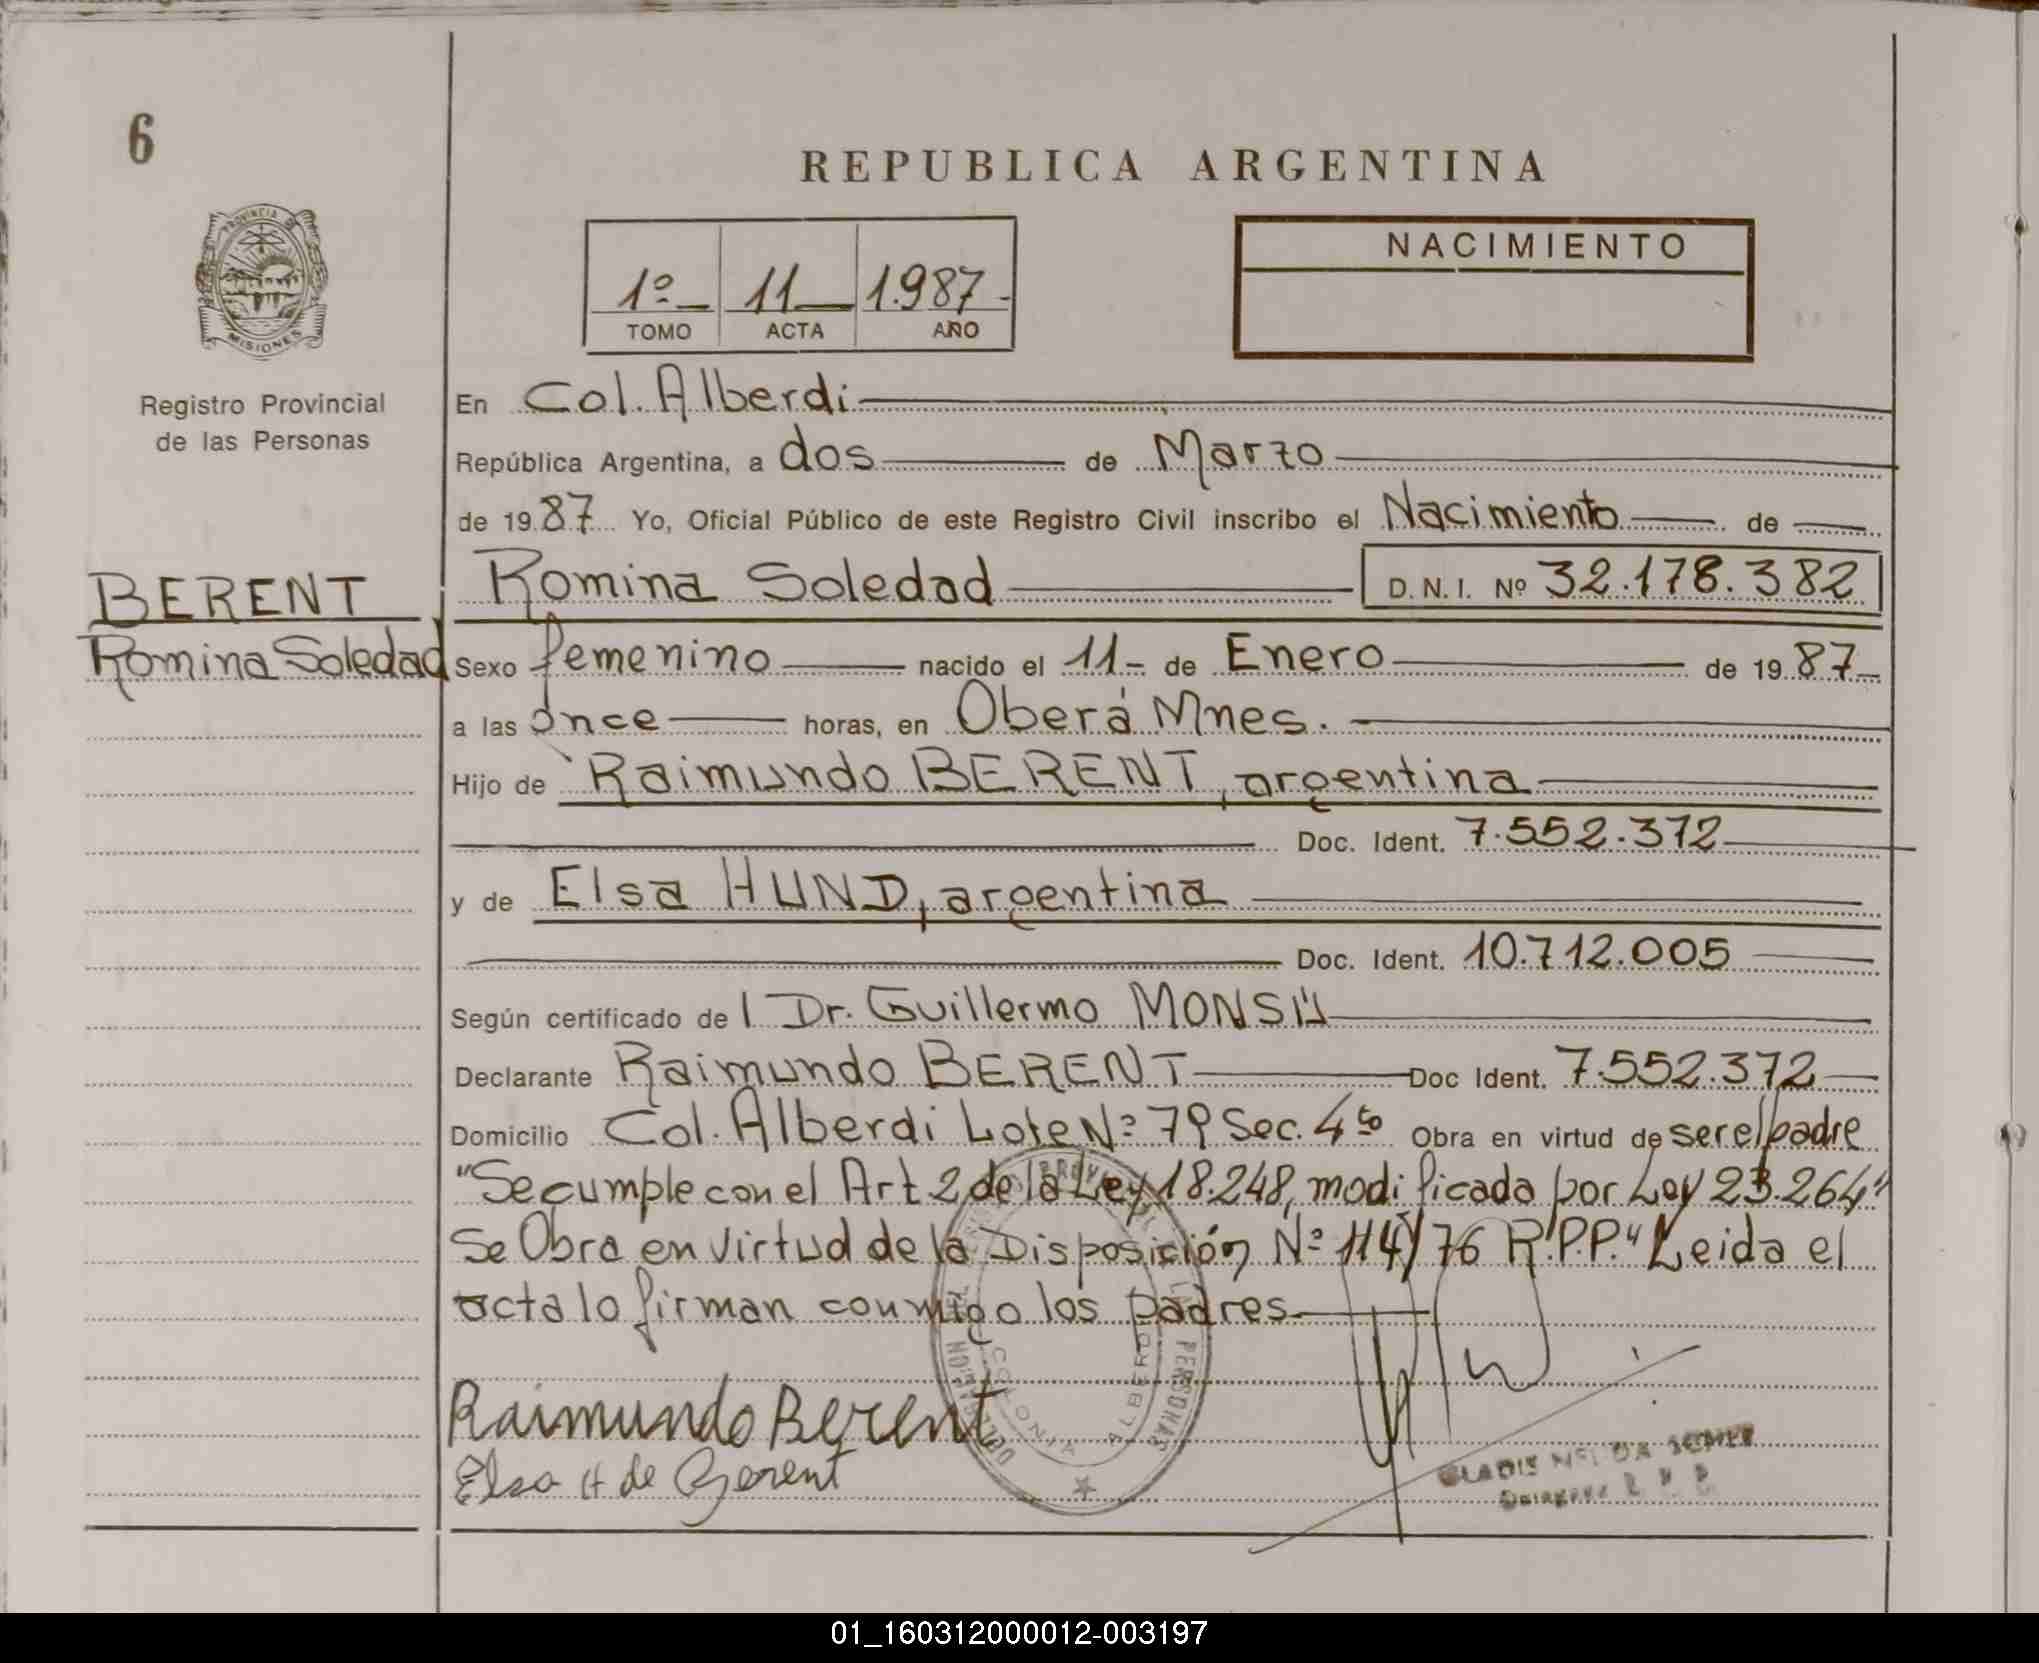 6
REPUBLICA ARGENTINA
PROVINCIA DE
MISIONES
Registro Provincial
de las Personas
1º
11
1.987
TOMO
ACTA
AÑO
NACIMIENTO
En Col. Alberdi
República Argentina, a dos de Marzo
de 1987 Yo, Oficial Público de este Registro Civil inscribo el Nacimiento de
BERENT
Romina Soledad
Romina Soledad D.N.I. Nº 32.178.382
Sexo femenino nacido el 11 de Enero de 1987
a las once horas, en Oberá Mnes.
Hijo de Raimundo BERENT, argentina
Doc. Ident. 7.552.372
y de Elsa HUND, argentina
Doc. Ident. 10.712.005
Según certificado de l Dr. Guillermo
Declarante Raimundo BERENT Doc Ident. 7.552.372
Domicilio Col. Alberdi Lote Nº 79 Sec. 4ta Obra en virtud de ser el padre
"Se cumple con el Art 2 de la Ley 18.248, modificada por Ley 23.264"
Se Obra en virtud de la Disposición Nº 114/76 R.P.P." Leida el
acta lo firman conmigo los padres
Raimundo Berent
Elsa H de Berent
PERSONAS
COLONIA ALBERDI
GLADIS
01_160312000012-003197